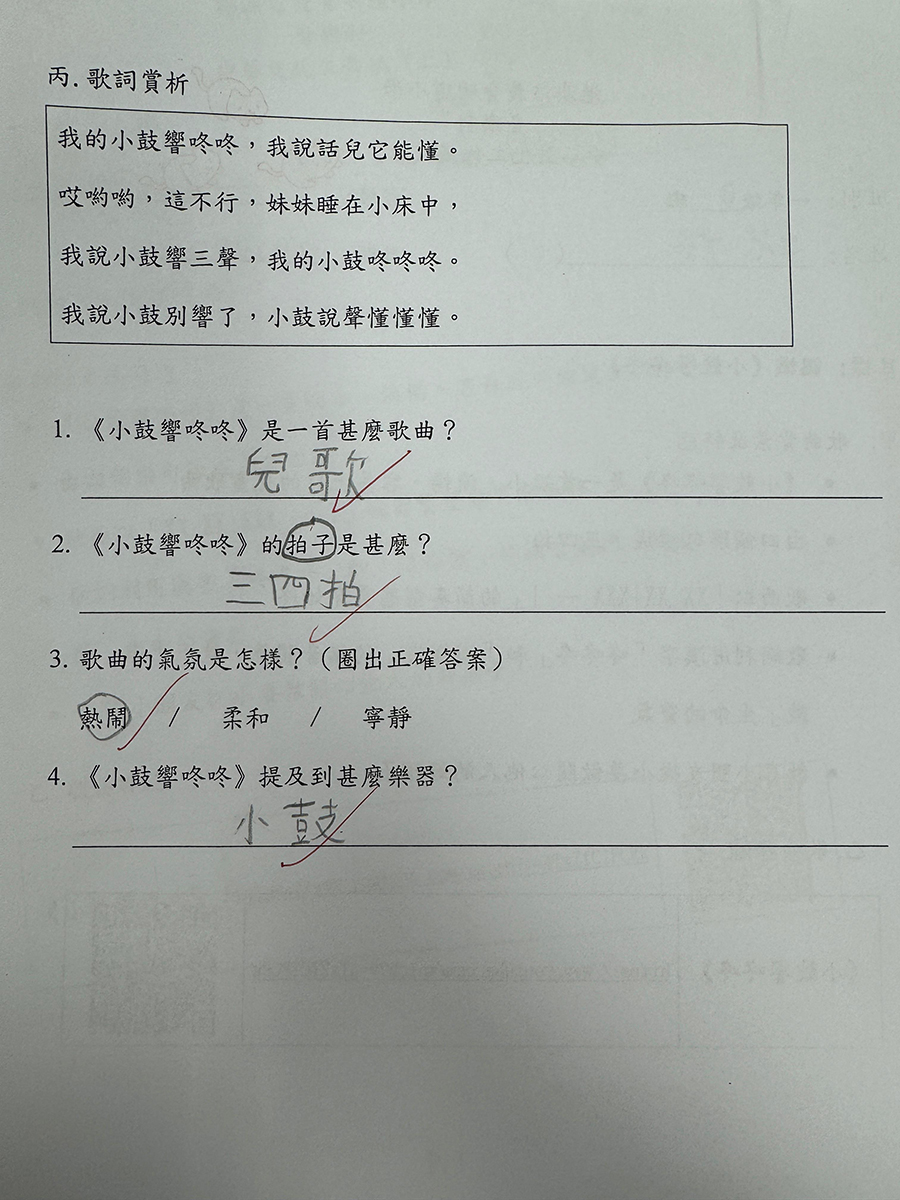 丙．歌詞賞析
我的小鼓響咚咚，我說話兒它能懂。
哎喲喲，這不行，妹妹睡在小床中，
我說小鼓響三聲，我的小鼓咚咚咚。
我說小鼓別響了，小鼓說聲懂懂懂。
1. 《小鼓響咚咚》是一首甚麼歌曲？
兒歌
2. 《小鼓響咚咚》的拍子是甚麼？
三四拍
3. 歌曲的氣氛是怎樣？（圈出正確答案）
熱鬧 / 柔和 / 寧靜
4. 《小鼓響咚咚》提及到甚麼樂器？
小鼓